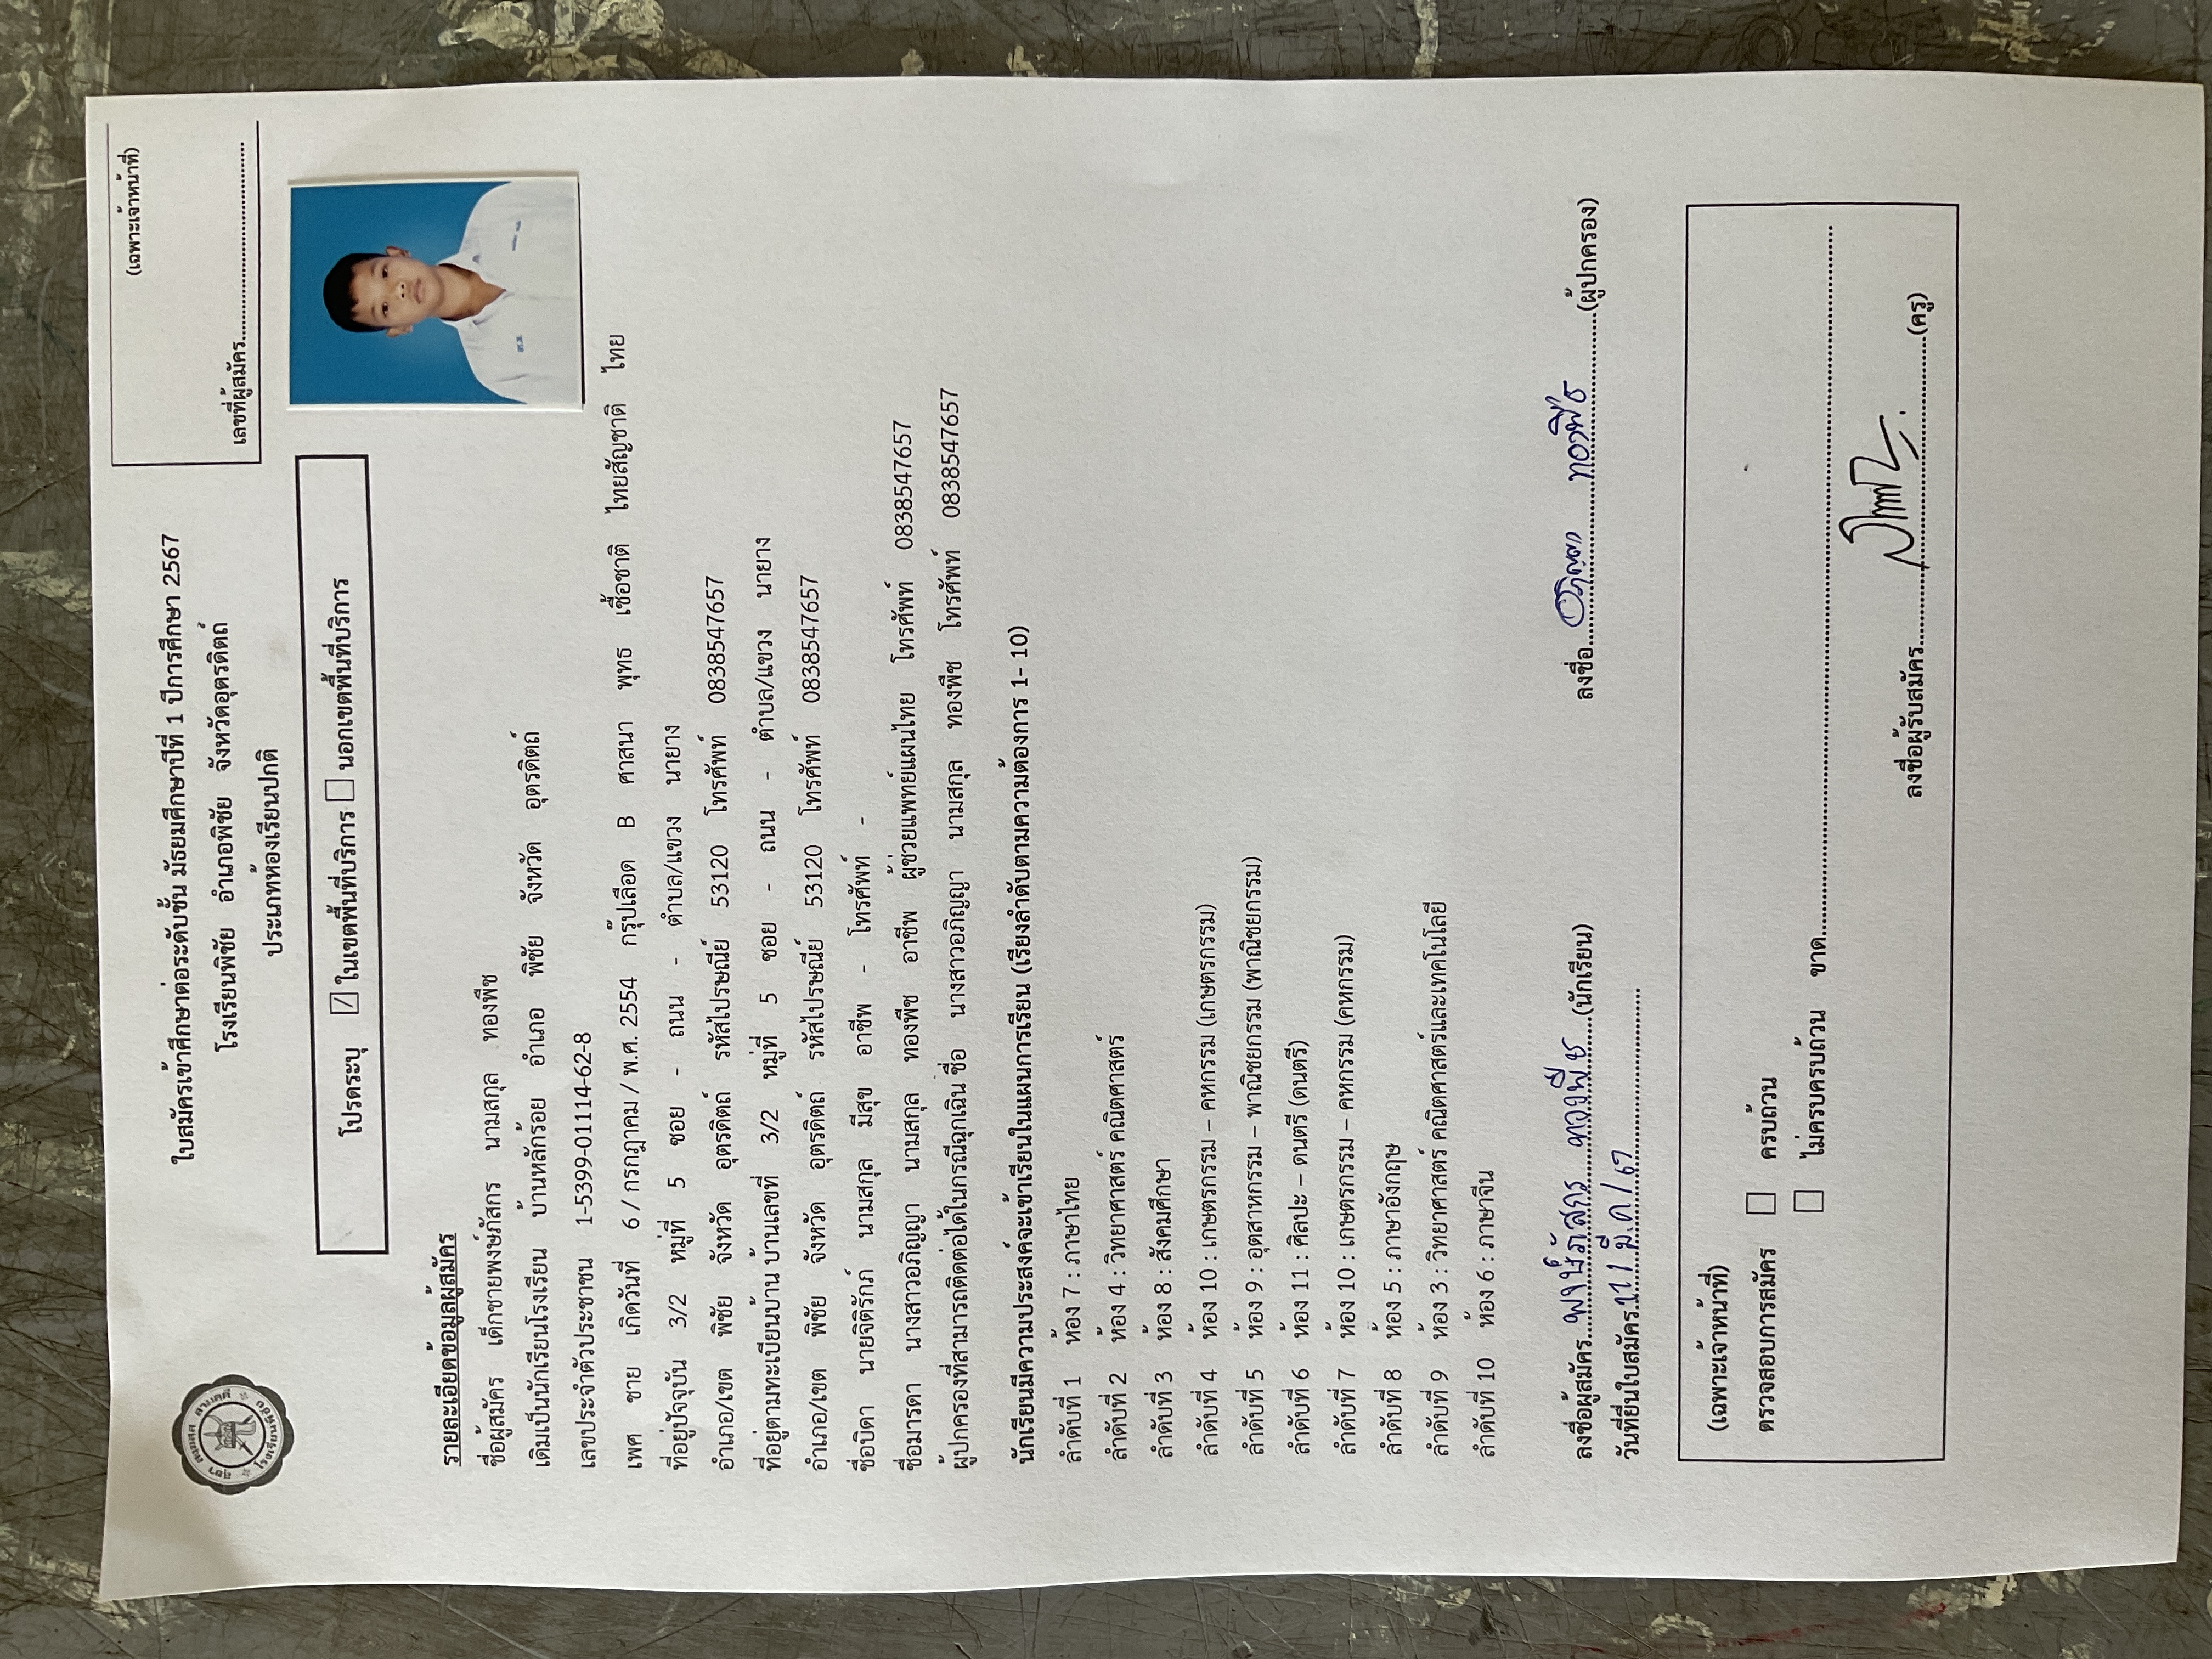 (เฉพาะเจ้าหน้าที่)
เลขที่ผู้สมัคร
ใบสมัครเข้าศึกษาต่อระดับชั้น มัธยมศึกษาปีที่ 1 ปีการศึกษา 2567
โรงเรียนพิชัย อำเภอพิชัย จังหวัดอุตรดิตถ์
ประเภทห้องเรียนปกติ
โปรดระบุ ☑ ในเขตพื้นที่บริการ ☐ นอกเขตพื้นที่บริการ
โรงเรียนพิชัย
รายละเอียดข้อมูลผู้สมัคร
ชื่อผู้สมัคร เด็กชายพงษ์ภัสกร นามสกุล ทองพืช
เดิมเป็นนักเรียนโรงเรียน บ้านหลักร้อย อำเภอ พิชัย จังหวัด อุตรดิตถ์
เลขประจำตัวประชาชน 1-5399-01114-62-8
เพศ ชาย เกิดวันที่ 6 / กรกฎาคม / พ.ศ. 2554 กรุ๊ปเลือด B ศาสนา พุทธ เชื้อชาติ ไทยสัญชาติ ไทย
ที่อยู่ปัจจุบัน 3/2 หมู่ที่ 5 ซอย - ถนน - ตำบล/แขวง นายาง
อำเภอ/เขต พิชัย จังหวัด อุตรดิตถ์ รหัสไปรษณีย์ 53120 โทรศัพท์ 0838547657
ที่อยู่ตามทะเบียนบ้าน บ้านเลขที่ 3/2 หมู่ที่ 5 ซอย - ถนน - ตำบล/แขวง นายาง
อำเภอ/เขต พิชัย จังหวัด อุตรดิตถ์ รหัสไปรษณีย์ 53120 โทรศัพท์ 0838547657
ชื่อบิดา นายจิติรักภ์ นามสกุล มีสุข อาชีพ - โทรศัพท์ -
ชื่อมารดา นางสาวอภิญญา นามสกุล ทองพืช อาชีพ ผู้ช่วยแพทย์แผนไทย โทรศัพท์ 0838547657
ผู้ปกครองที่สามารถติดต่อได้ในกรณีฉุกเฉิน ชื่อ นางสาวอภิญญา นามสกุล ทองพืช โทรศัพท์ 0838547657
นักเรียนมีความประสงค์จะเข้าเรียนในแผนการเรียน (เรียงลำดับตามความต้องการ 1- 10)
ลำดับที่ 1 ห้อง 7 : ภาษาไทย
ลำดับที่ 2 ห้อง 4 : วิทยาศาสตร์ คณิตศาสตร์
ลำดับที่ 3 ห้อง 8 : สังคมศึกษา
ลำดับที่ 4 ห้อง 10 : เกษตรกรรม – คหกรรม (เกษตรกรรม)
ลำดับที่ 5 ห้อง 9 : อุตสาหกรรม – พาณิชยกรรม (พาณิชยกรรม)
ลำดับที่ 6 ห้อง 11 : ศิลปะ – ดนตรี (ดนตรี)
ลำดับที่ 7 ห้อง 10 : เกษตรกรรม – คหกรรม (คหกรรม)
ลำดับที่ 8 ห้อง 5 : ภาษาอังกฤษ
ลำดับที่ 9 ห้อง 3 : วิทยาศาสตร์ คณิตศาสตร์และเทคโนโลยี
ลำดับที่ 10 ห้อง 6 : ภาษาจีน
ลงชื่อผู้สมัคร พงษ์ภัสกร ทองพืช (นักเรียน) ลงชื่อ อภิญญา ทองพืช (ผู้ปกครอง)
วันที่ยื่นใบสมัคร 11 / มี.ค / 67
(เฉพาะเจ้าหน้าที่)
ตรวจสอบการสมัคร ☐ ครบถ้วน
☐ ไม่ครบครบถ้วน ขาด
ลงชื่อผู้รับสมัคร (ครู)